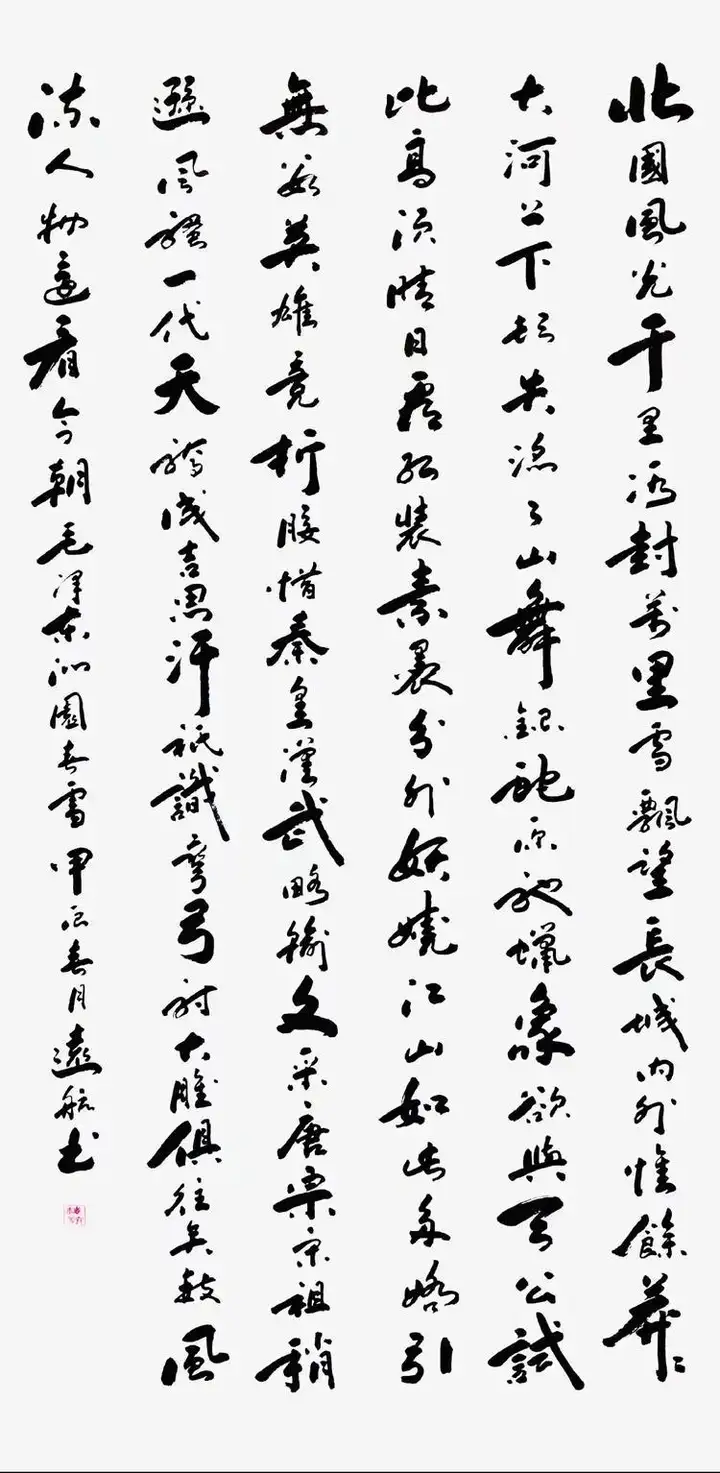 北國風光千里冰封萬里雪飄望長城内外惟餘莽〻
大河上下頓失滔〻山舞銀蛇原馳蠟象欲與天公試
比高須晴日看紅裝素裹分外妖嬈江山如此多嬌引
無數英雄竞折腰惜秦皇漢武略輸文采唐宗宋祖稍
遜風騷一代天驕成吉思汗祇識彎弓射大雕俱往矣數風
流人物還看今朝毛澤東沁園春雪甲辰春月航書